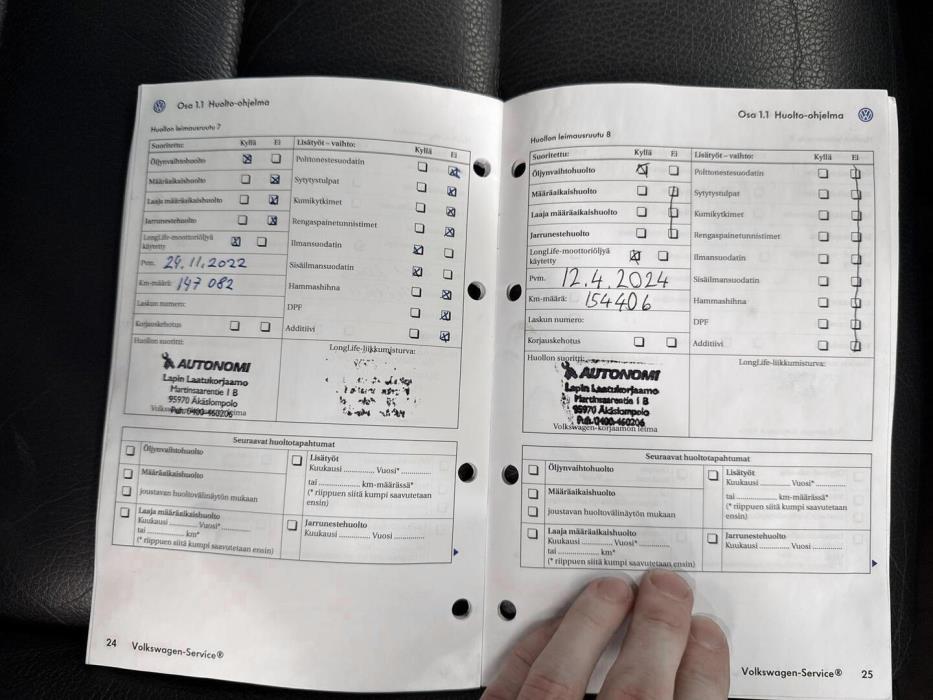 Osa 1.1 Huolto-ohjelma
Huollon leimausruutu 7
Suoritettu: Kyllä Ei
Öljynvaihtohuolto
Määräaikaishuolto
Laaja määräaikaishuolto
Jarrunestehuolto
LongLife-moottoriöljyä
käytetty
Pvm. 24.11.2022
Km-määrä: 147 082
Laskun numero:
Korjauskehotus
Lisätyöt – vaihto: Kyllä Ei
Polttonestesuodatin
Sytytystulpat
Kumikytkimet
Rengaspainetunnistimet
Ilmansuodatin
Sisäilmansuodatin
Hammashihna
DPF
Additiivi
Huollon suoritti:
AUTONOMI
Lapin Laatukorjaamo
Martinsaarentie 1 B
95970 Äkäslompolo
Puh. 0400-460206
LongLife-liikkumisturva:
Seuraavat huoltotapahtumat
Öljynvaihtohuolto
Määräaikaishuolto
joustavan huoltovälinäytön mukaan
Laaja määräaikaishuolto
Kuukausi ............ Vuosi* ............
tai ............ km*
(* riippuen siitä kumpi saavutetaan ensin)
Lisätyöt
Kuukausi ............ Vuosi* ............
tai ............ km-määrässä*
(* riippuen siitä kumpi saavutetaan
ensin)
Jarrunestehuolto
Kuukausi ............ Vuosi ............
24 Volkswagen-Service®
Osa 1.1 Huolto-ohjelma
Huollon leimausruutu 8
Suoritettu: Kyllä Ei
Öljynvaihtohuolto
Määräaikaishuolto
Laaja määräaikaishuolto
Jarrunestehuolto
LongLife-moottoriöljyä
käytetty
Pvm. 12.4.2024
Km-määrä: 154406
Laskun numero:
Korjauskehotus
Lisätyöt – vaihto: Kyllä Ei
Polttonestesuodatin
Sytytystulpat
Kumikytkimet
Rengaspainetunnistimet
Ilmansuodatin
Sisäilmansuodatin
Hammashihna
DPF
Additiivi
Huollon suoritti:
AUTONOMI
Lapin Laatukorjaamo
Martinsaarentie 1 B
95970 Äkäslompolo
Puh. 0400-460206
Volkswagen-korjaamon leima
LongLife-liikkumisturva:
Seuraavat huoltotapahtumat
Öljynvaihtohuolto
Määräaikaishuolto
joustavan huoltovälinäytön mukaan
Laaja määräaikaishuolto
Kuukausi ............ Vuosi* ............
tai ............ km*
(* riippuen siitä kumpi saavutetaan ensin)
Lisätyöt
Kuukausi ............ Vuosi* ............
tai ............ km-määrässä*
(* riippuen siitä kumpi saavutetaan
ensin)
Jarrunestehuolto
Kuukausi ............ Vuosi ............
Volkswagen-Service® 25